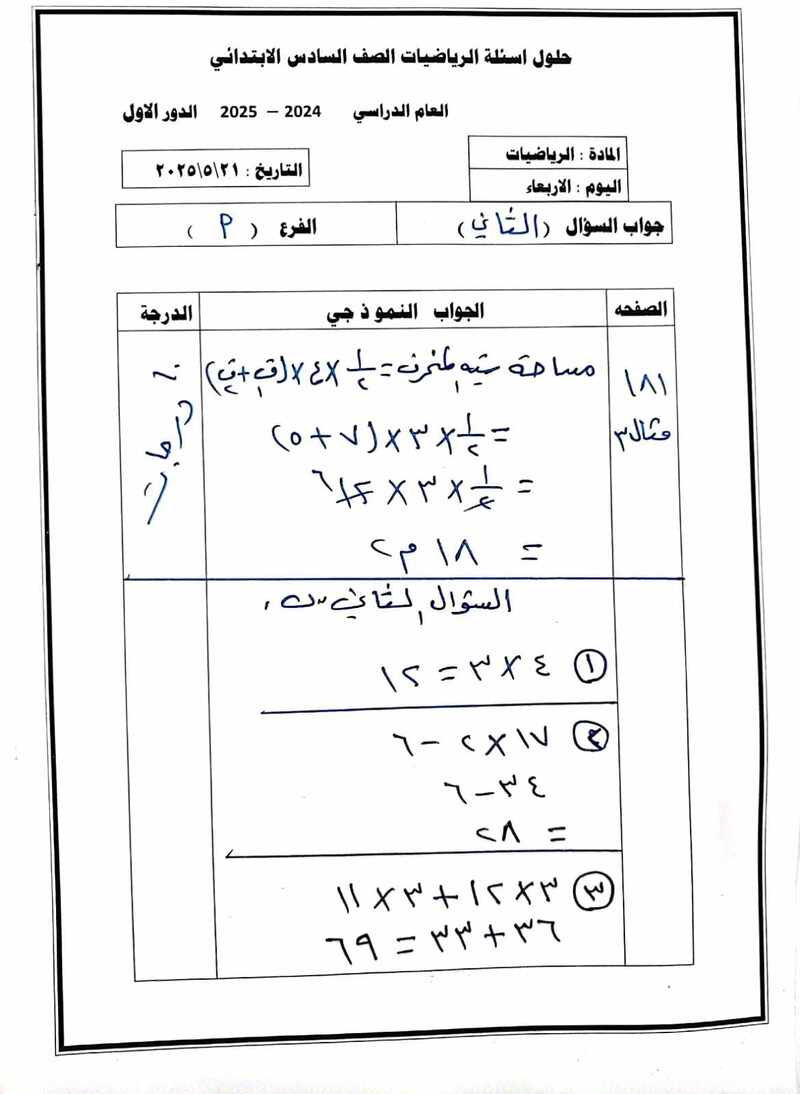 حلول اسئلة الرياضيات الصف السادس الابتدائي
العام الدراسي 2024 – 2025 الدور الاول
المادة : الرياضيات
التاريخ : ٢٠٢٥\٥\٢١
اليوم : الاربعاء
جواب السؤال (الثاني) الفرع ( P )
الصفحه الجواب النموذجي الدرجة
١٨١
مثال ٣
مساحة شبه المنحرف = ١/٢ × ع × (ق١ + ق٢)
= ١/٢ × ٣ × (٧ + ٥)
= ١/٢ × ٣ × ١٢ ٦
= ١٨ م٢
درجات
السؤال الثاني
١ ٤ × ٣ = ١٢
٢ ١٧ × ٢ – ٦
٣٤ – ٦
= ٢٨
٣ ٣ × ١٢ + ٣ × ١١
٣٦ + ٣٣ = ٦٩